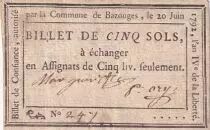 par la Commune de Bazouges, le 20 Juin
1792, l'an IVe de la Liberté.
Billet de Confiance, autorisé
BILLET DE CINQ SOLS,
à échanger
en Assignats de Cinq liv. seulement.
No 247